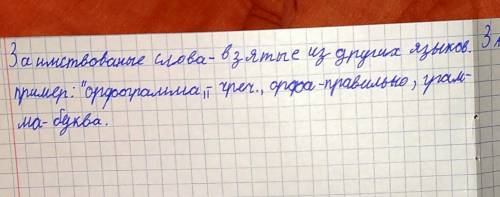 Заимствованые слова - взятые из других языков. З
пример: "орфограмма„ - греч., орфа-правильно, грам-
ма-буква.